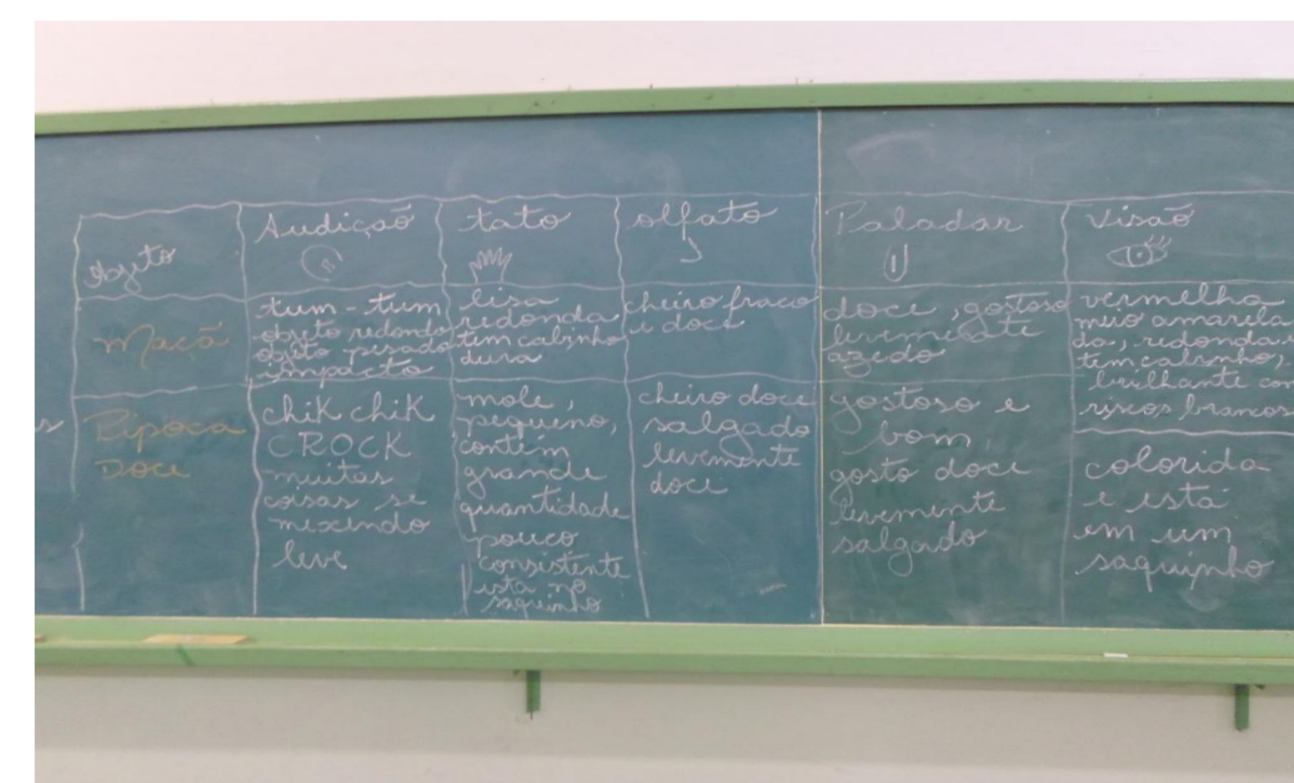 objeto
Audição
tato
olfato
Paladar
visão
Maçã
tum-tum
objeto redondo
objeto pesado
impacto
lisa
redonda
tem cabinho
dura
cheiro fraco
e doce
doce, gostoso
levemente
azedo
vermelha
meio amarela
da, redonda e
tem cabinho,
brilhante com
riscos brancos
Pipoca
Doce
chik chik
CROCK
muitas
coisas se
mexendo
leve
mole,
pequeno,
contém
grande
quantidade
pouco
consistente
está no
saquinho
cheiro doce
salgado
levemente
doce
gostoso e
bom,
gosto doce
levemente
salgado
colorida
e está
em um
saquinho